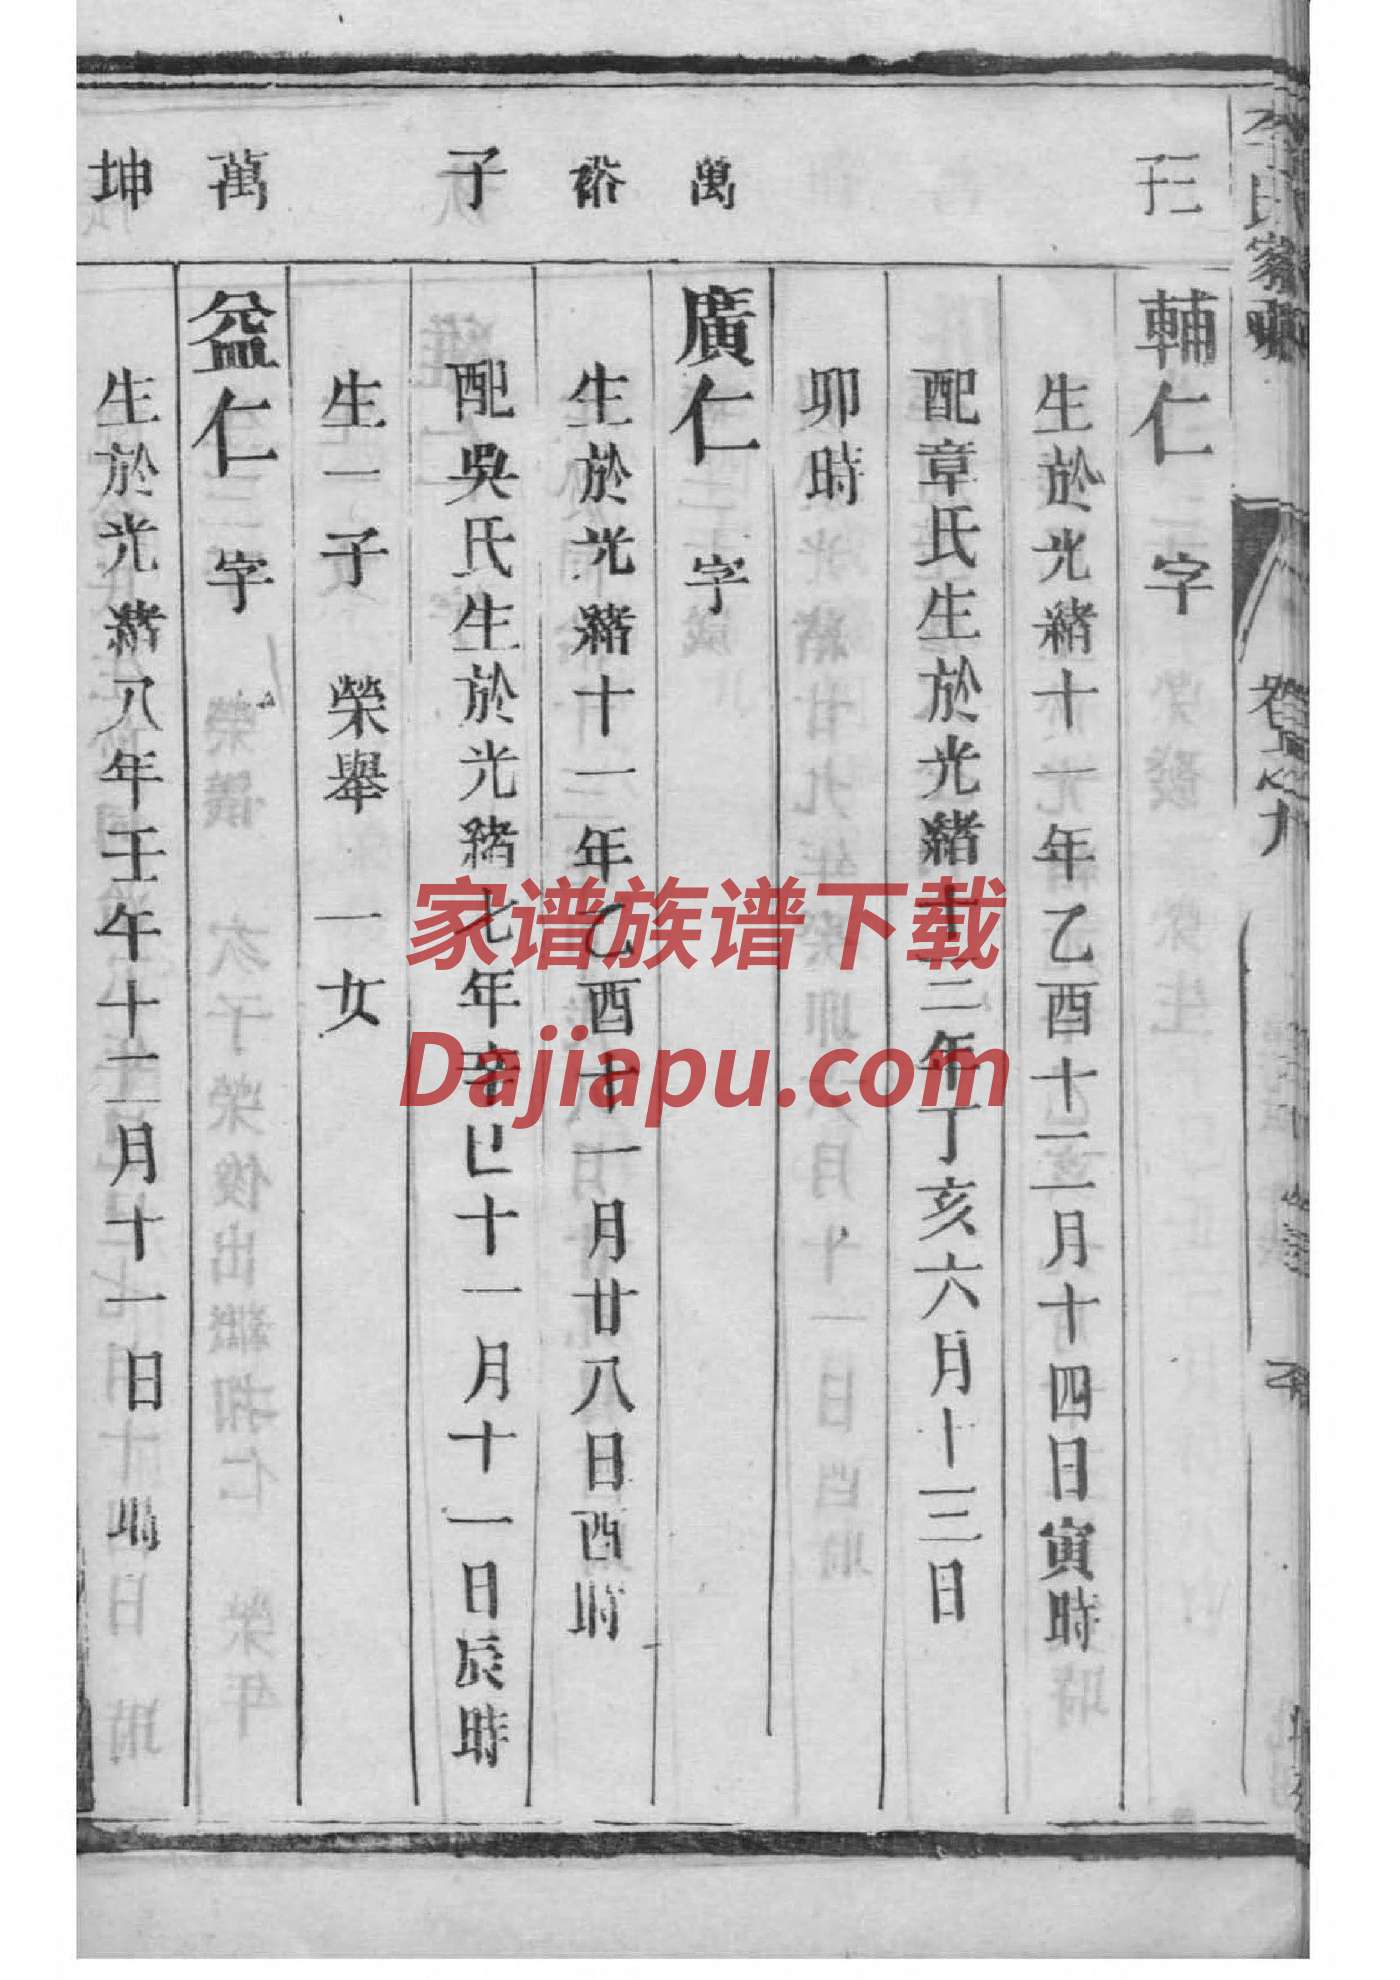 三子
輔仁 字
生於光緒十一年乙酉十二月十四日寅時
配章氏生於光緒十三年丁亥六月十三日
卯時
萬
廣仁 字
裕
生於光緒十一年乙酉十一月廿八日酉時
子
配吳氏生於光緒七年辛巳十一月十一日辰時
生一子 榮舉 一女
萬
益仁 字
坤
生於光緒八年壬午十二月十一日 時
家谱族谱下载
Dajiapu.com